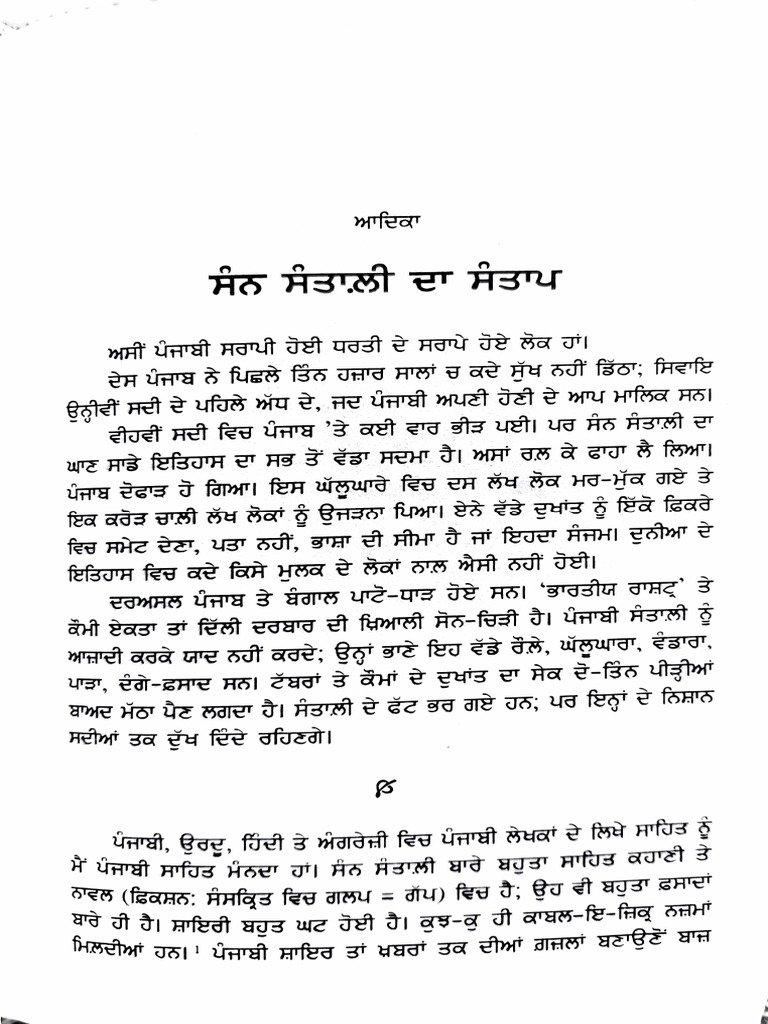 ਆਦਿਕਾ
ਸੰਨ ਸੰਤਾਲ਼ੀ ਦਾ ਸੰਤਾਪ
ਅਸੀਂ ਪੰਜਾਬੀ ਸਰਾਪੀ ਹੋਈ ਧਰਤੀ ਦੇ ਸਰਾਪੇ ਹੋਏ ਲੋਕ ਹਾਂ।
ਦੇਸ ਪੰਜਾਬ ਨੇ ਪਿਛਲੇ ਤਿੰਨ ਹਜ਼ਾਰ ਸਾਲਾਂ ਚ ਕਦੇ ਸੁੱਖ ਨਹੀਂ ਡਿੱਠਾ; ਸਿਵਾਇ
ਉਨ੍ਹੀਵੀਂ ਸਦੀ ਦੇ ਪਹਿਲੇ ਅੱਧ ਦੇ, ਜਦ ਪੰਜਾਬੀ ਅਪਣੀ ਹੋਣੀ ਦੇ ਆਪ ਮਾਲਿਕ ਸਨ।
ਵੀਹਵੀਂ ਸਦੀ ਵਿਚ ਪੰਜਾਬ ’ਤੇ ਕਈ ਵਾਰ ਭੀੜ ਪਈ। ਪਰ ਸੰਨ ਸੰਤਾਲ਼ੀ ਦਾ
ਘਾਣ ਸਾਡੇ ਇਤਿਹਾਸ ਦਾ ਸਭ ਤੋਂ ਵੱਡਾ ਸਦਮਾ ਹੈ। ਅਸਾਂ ਰਲ਼ ਕੇ ਫਾਹਾ ਲੈ ਲਿਆ।
ਪੰਜਾਬ ਦੋਫਾੜ ਹੋ ਗਿਆ। ਇਸ ਘੱਲੂਘਾਰੇ ਵਿਚ ਦਸ ਲੱਖ ਲੋਕ ਮਰ-ਮੁੱਕ ਗਏ ਤੇ
ਇਕ ਕਰੋੜ ਚਾਲ਼ੀ ਲੱਖ ਲੋਕਾਂ ਨੂੰ ਉਜੜਨਾ ਪਿਆ। ਏਨੇ ਵੱਡੇ ਦੁਖਾਂਤ ਨੂੰ ਇੱਕੋ ਫ਼ਿਕਰੇ
ਵਿਚ ਸਮੇਟ ਦੇਣਾ, ਪਤਾ ਨਹੀਂ, ਭਾਸ਼ਾ ਦੀ ਸੀਮਾ ਹੈ ਜਾਂ ਇਹਦਾ ਸੰਜਮ। ਦੁਨੀਆ ਦੇ
ਇਤਿਹਾਸ ਵਿਚ ਕਦੇ ਕਿਸੇ ਮੁਲਕ ਦੇ ਲੋਕਾਂ ਨਾਲ਼ ਐਸੀ ਨਹੀਂ ਹੋਈ।
ਦਰਅਸਲ ਪੰਜਾਬ ਤੇ ਬੰਗਾਲ ਪਾਟੋ-ਧਾੜ ਹੋਏ ਸਨ। ‘ਭਾਰਤੀਯ ਰਾਸ਼ਟ੍ਰ’ ਤੇ
ਕੌਮੀ ਏਕਤਾ ਤਾਂ ਦਿੱਲੀ ਦਰਬਾਰ ਦੀ ਖ਼ਿਆਲੀ ਸੋਨ-ਚਿੜੀ ਹੈ। ਪੰਜਾਬੀ ਸੰਤਾਲ਼ੀ ਨੂੰ
ਆਜ਼ਾਦੀ ਕਰਕੇ ਯਾਦ ਨਹੀਂ ਕਰਦੇ; ਉਨ੍ਹਾਂ ਭਾਣੇ ਇਹ ਵੱਡੇ ਰੌਲ਼ੇ, ਘੱਲੂਘਾਰਾ, ਵੰਡਾਰਾ,
ਪਾੜਾ, ਦੰਗੇ-ਫ਼ਸਾਦ ਸਨ। ਟੱਬਰਾਂ ਤੇ ਕੌਮਾਂ ਦੇ ਦੁਖਾਂਤ ਦਾ ਸੇਕ ਦੋ-ਤਿੰਨ ਪੀੜ੍ਹੀਆਂ
ਬਾਅਦ ਮੱਠਾ ਪੈਣ ਲਗਦਾ ਹੈ। ਸੰਤਾਲ਼ੀ ਦੇ ਫੱਟ ਭਰ ਗਏ ਹਨ; ਪਰ ਇਨ੍ਹਾਂ ਦੇ ਨਿਸ਼ਾਨ
ਸਦੀਆਂ ਤਕ ਦੁੱਖ ਦਿੰਦੇ ਰਹਿਣਗੇ।
ਪੰਜਾਬੀ, ਉਰਦੂ, ਹਿੰਦੀ ਤੇ ਅੰਗਰੇਜ਼ੀ ਵਿਚ ਪੰਜਾਬੀ ਲੇਖਕਾਂ ਦੇ ਲਿਖੇ ਸਾਹਿਤ ਨੂੰ
ਮੈਂ ਪੰਜਾਬੀ ਸਾਹਿਤ ਮੰਨਦਾ ਹਾਂ। ਸੰਨ ਸੰਤਾਲ਼ੀ ਬਾਰੇ ਬਹੁਤਾ ਸਾਹਿਤ ਕਹਾਣੀ ਤੇ
ਨਾਵਲ (ਫ਼ਿਕਸ਼ਨ: ਸੰਸਕ੍ਰਿਤ ਵਿਚ ਗਲਪ = ਗੱਪ) ਵਿਚ ਹੈ; ਉਹ ਵੀ ਬਹੁਤਾ ਫ਼ਸਾਦਾਂ
ਬਾਰੇ ਹੀ ਹੈ। ਸ਼ਾਇਰੀ ਬਹੁਤ ਘਟ ਹੋਈ ਹੈ। ਕੁਝ-ਕੁ ਹੀ ਕਾਬਲ-ਇ-ਜ਼ਿਕ੍ਰ ਨਜ਼ਮਾਂ
ਮਿਲ਼ਦੀਆਂ ਹਨ।¹ ਪੰਜਾਬੀ ਸ਼ਾਇਰ ਤਾਂ ਖ਼ਬਰਾਂ ਤਕ ਦੀਆਂ ਗ਼ਜ਼ਲਾਂ ਬਣਾਉਣੋਂ ਬਾਜ਼